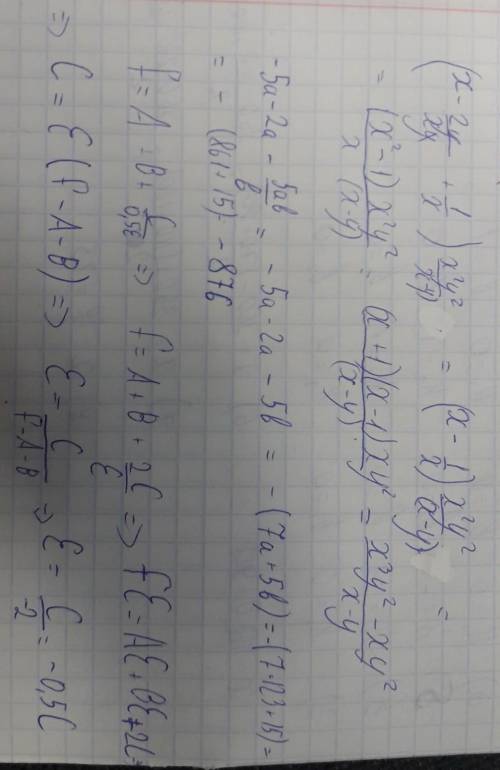 (x - 2y/xy + 1/x) x²y²/(x-y) = (x - 1/x) x²y²/(x-y) =
= (x²-1) x²y² / x(x-y) = (x+1)(x-1) xy² / (x-y) = x³y² - xy² / x-y
-5a - 2a - 5ab/b = -5a - 2a - 5b = -(7a + 5b) = -(7·123 + 15) =
= -(861 + 15) - 876
f = A - B + C/0,5E => f = A + B + 2C/E => fE = AE + BE + 2C =
=> C = E(f - A - B) => E = C/f-A-B => E = C/-2 = -0,5C